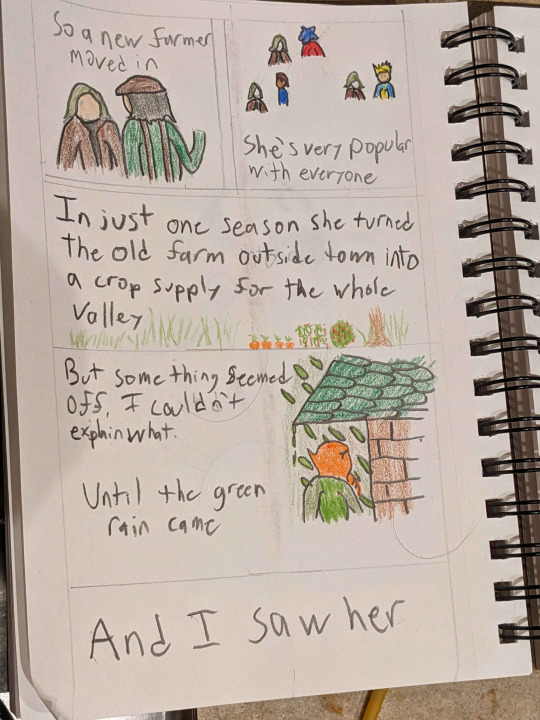 So a new farmer
moved in
She's very popular
with everyone
In just one season she turned
the old farm outside town into
a crop supply for the whole
Valley
But something seemed
off, I couldn't
explain what.
Until the green
rain came
And I saw her